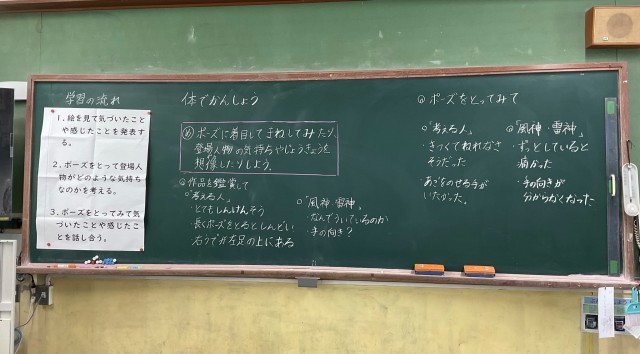 学習の流れ
1.絵を見て気づいたこと
や感じたことを発表す
る。
2.ポーズをとって登場人
物がどのような気持ち
なのかを考える。
3.ポーズをとってみて気
づいたことや感じたこ
とを話し合う。
体でかんしょう
め ポーズに着目してまねしてみたり、
登場人物の気持ちやじょうきょうを
想像したりしよう。
作品を鑑賞して
「考える人」
・とてもしんけんそう
長くポーズをとるとしんどい
右うでが左足の上にある
「風神・雷神」
・なんでういているのか
・手の向き?
ポーズをとってみて
「考える人」
・きつくてねれなさ
そうだった
あごをのせる手が
いたかった。
「風神・雷神」
・ずっとしていると
痛かった
・手の向きが
分からなくなった